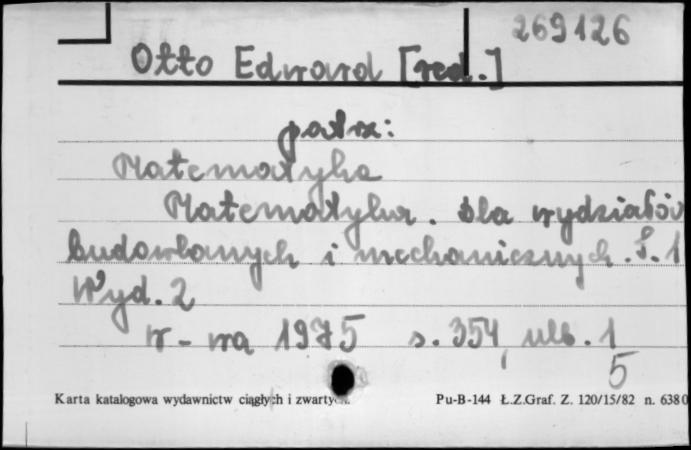 269126
Otto Edward [red.]
patrz:
Matematyka
Matematyka. Dla wydziałów
budowlanych i mechanicznych. T. 1
Wyd. 2
W-wa 1975 s. 354, ulb. 1
5
Karta katalogowa wydawnictw ciągłych i zwartych. Pu-B-144 Ł.Z.Graf. Z. 120/15/82 n. 6380